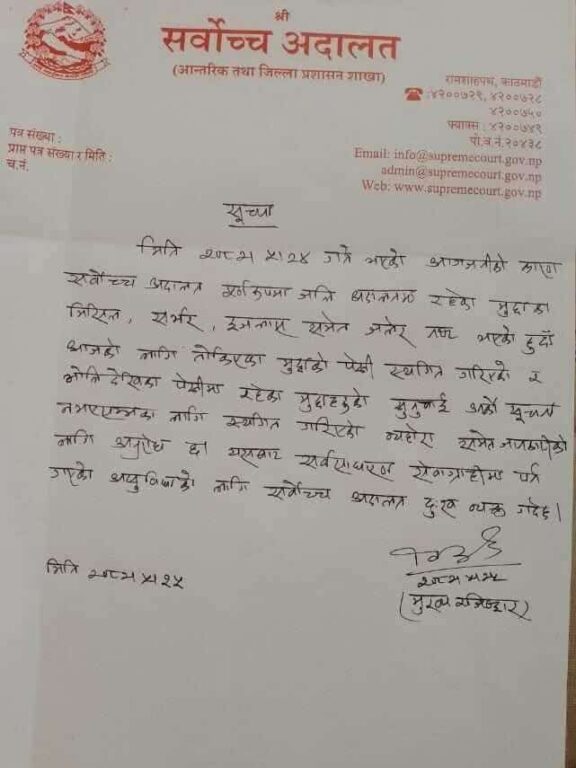 श्री
सर्वोच्च अदालत
(आन्तरिक तथा जिल्ला प्रशासन शाखा)
रामशाहपथ, काठमाडौं
☎ :४२००७२९, ४२००७२८
४२००७५०
फ्याक्स : ४२००७४९
पो.व.नं.२०४३८
Email: info@supremecourt.gov.np
admin@supremecourt.gov.np
Web: www.supremecourt.gov.np
पत्र संख्या :
प्राप्त पत्र संख्या र मिति :
च.नं.
सूचना
मिति २०८२।५।२४ गते भएको आगजनीको कारण
सर्वोच्च अदालत पूर्णरूपमा जलि अदालतमा रहेका मुद्दाका
मिसिल, सर्भर, इजलास समेत जलेर नष्ट भएको हुदाँ
आजको लागि तोकिएका मुद्दाको पेसी स्थगित गरिएको र
भोलि देखिका पेसीमा रहेका मुद्दाहरुको सुनुवाई अर्को सूचना
नभएसम्मका लागि स्थगित गरिएको व्यहोरा समेत जानकारीको
लागि अनुरोध छ। यसबाट सर्वसाधारण सेवाग्राहीमा पर्न
गएको असुविधाको लागि सर्वोच्च अदालत दुःख व्यक्त गर्दछ।
२०८२।५।२५
(मुख्य रजिष्ट्रार)
मिति २०८२।५।२५